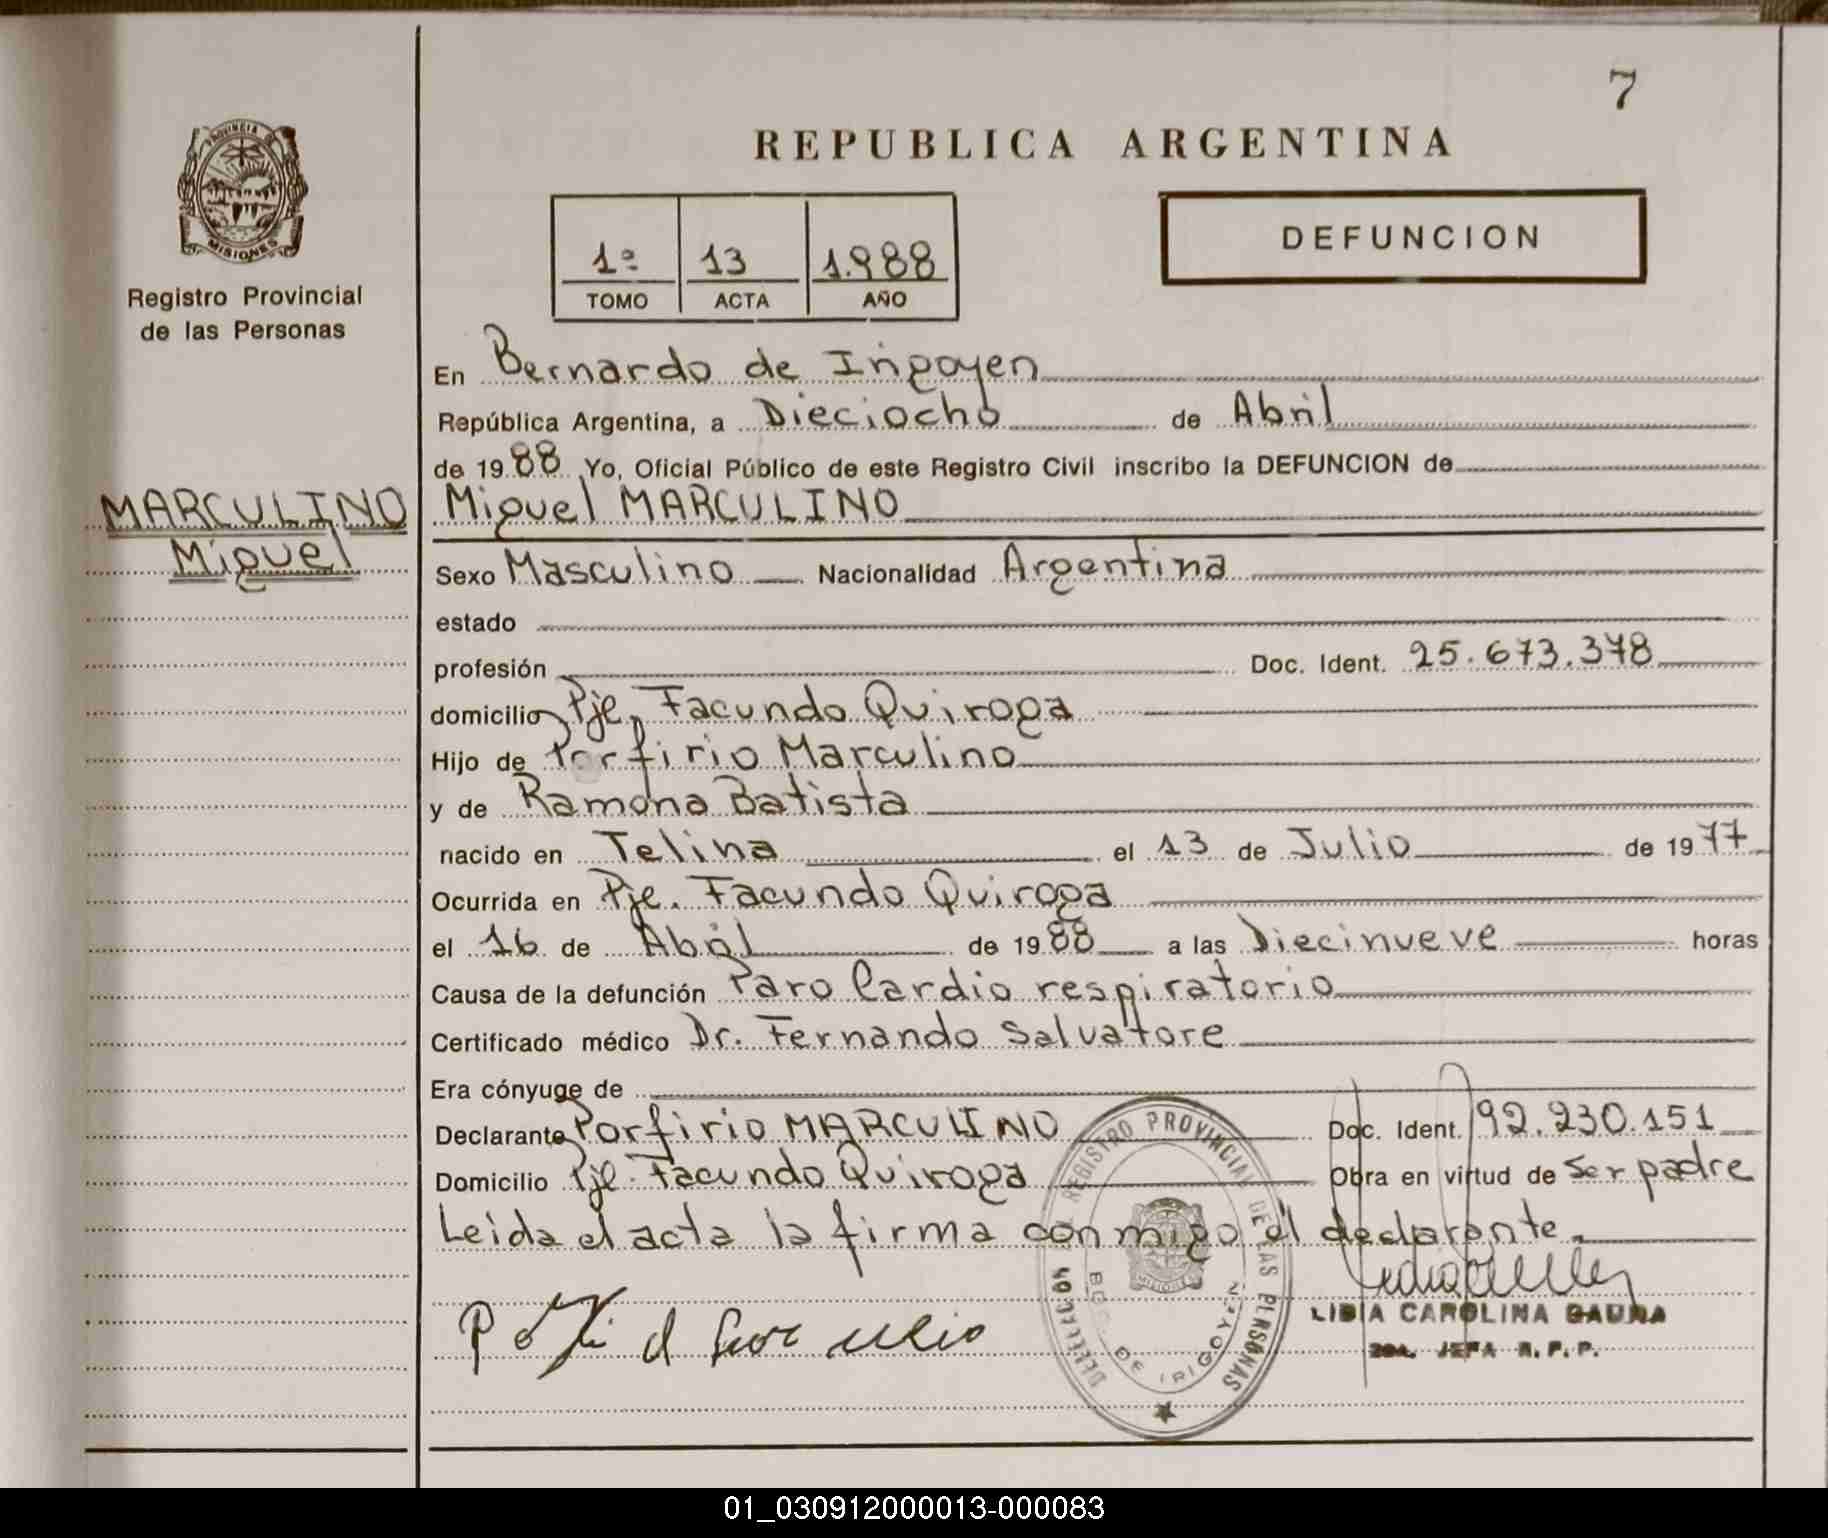 7
REPUBLICA ARGENTINA
PROVINCIA DE
MISIONES
Registro Provincial
de las Personas
1º 13 1.988
TOMO ACTA AÑO
DEFUNCION
En Bernardo de Irigoyen
República Argentina, a Dieciocho de Abril
de 1988 Yo, Oficial Público de este Registro Civil inscribo la DEFUNCION de
MARCULINO
Miguel
Miguel MARCULINO
Sexo Masculino Nacionalidad Argentina
estado
profesión Doc. Ident. 25.673.378
domicilio Pje. Facundo Quiroga
Hijo de Porfirio Marculino
y de Ramona Batista
nacido en Telina el 13 de Julio de 1977
Ocurrida en Pje. Facundo Quiroga
el 16 de Abril de 1988 a las Diecinueve horas
Causa de la defunción Paro Cardio respiratorio
Certificado médico Dr. Fernando Salvatore
Era cónyuge de
Declarante Porfirio MARCULINO Doc. Ident. 92.230.151
Domicilio Pje. Facundo Quiroga Obra en virtud de ser padre
Leida el acta la firma conmigo el declarante.
REGISTRO PROVINCIAL DE LAS PERSONAS
BDO. DE IRIGOYEN
LIBIA CAROLINA GAUNA
JEFA R.P.P.
01_030912000013-000083